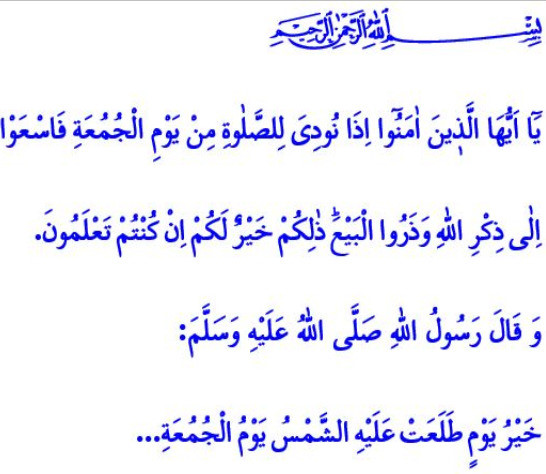 بِسْمِ اللّٰهِ الرَّحْمٰنِ الرَّحِيمِ
يَٓا اَيُّهَا الَّذ۪ينَ اٰمَنُٓوا اِذَا نُودِىَ لِلصَّلٰوةِ مِنْ يَوْمِ الْجُمُعَةِ فَاسْعَوْا
اِلٰى ذِكْرِ اللّٰهِ وَذَرُوا الْبَيْعَۜ ذٰلِكُمْ خَيْرٌ لَكُمْ اِنْ كُنْتُمْ تَعْلَمُونَ.
وَ قَالَ رَسُولُ اللّٰهِ صَلَّى اللّٰهُ عَلَيْهِ وَسَلَّمَ:
خَيْرُ يَوْمٍ طَلَعَتْ عَلَيْهِ الشَّمْسُ يَوْمُ الْجُمُعَةِ...